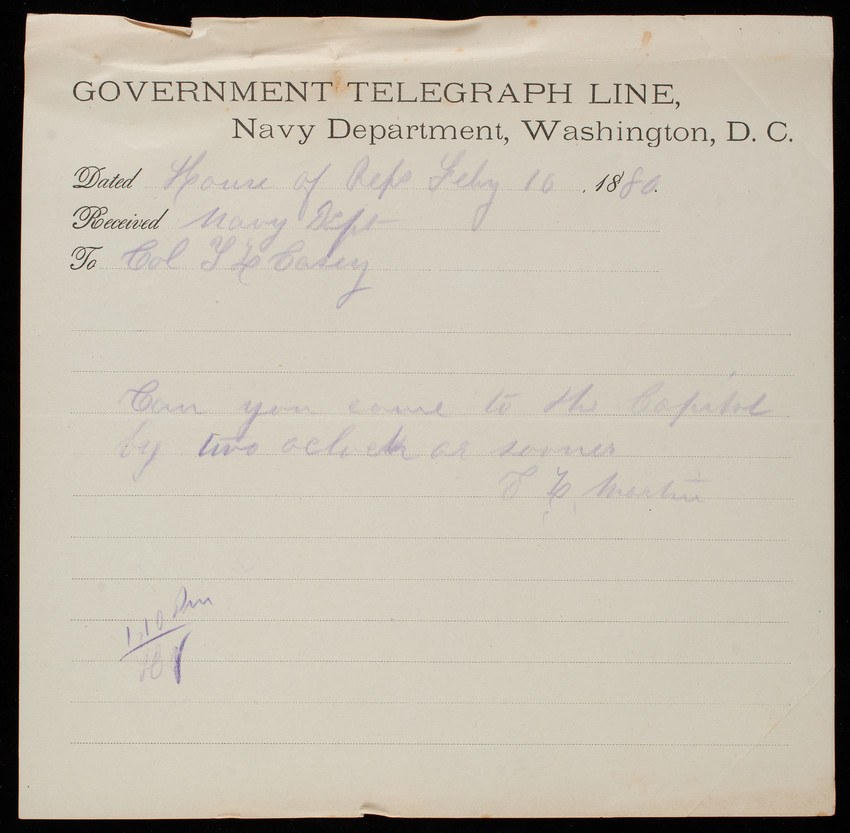 GOVERNMENT TELEGRAPH LINE,
Navy Department, Washington, D. C.
Dated House of Reps Feby 16, 1880.
Received Navy Dept
To Col T L Casey
Can you come to the Capitol
by two oclock or sooner
Martin
1.10 Pm